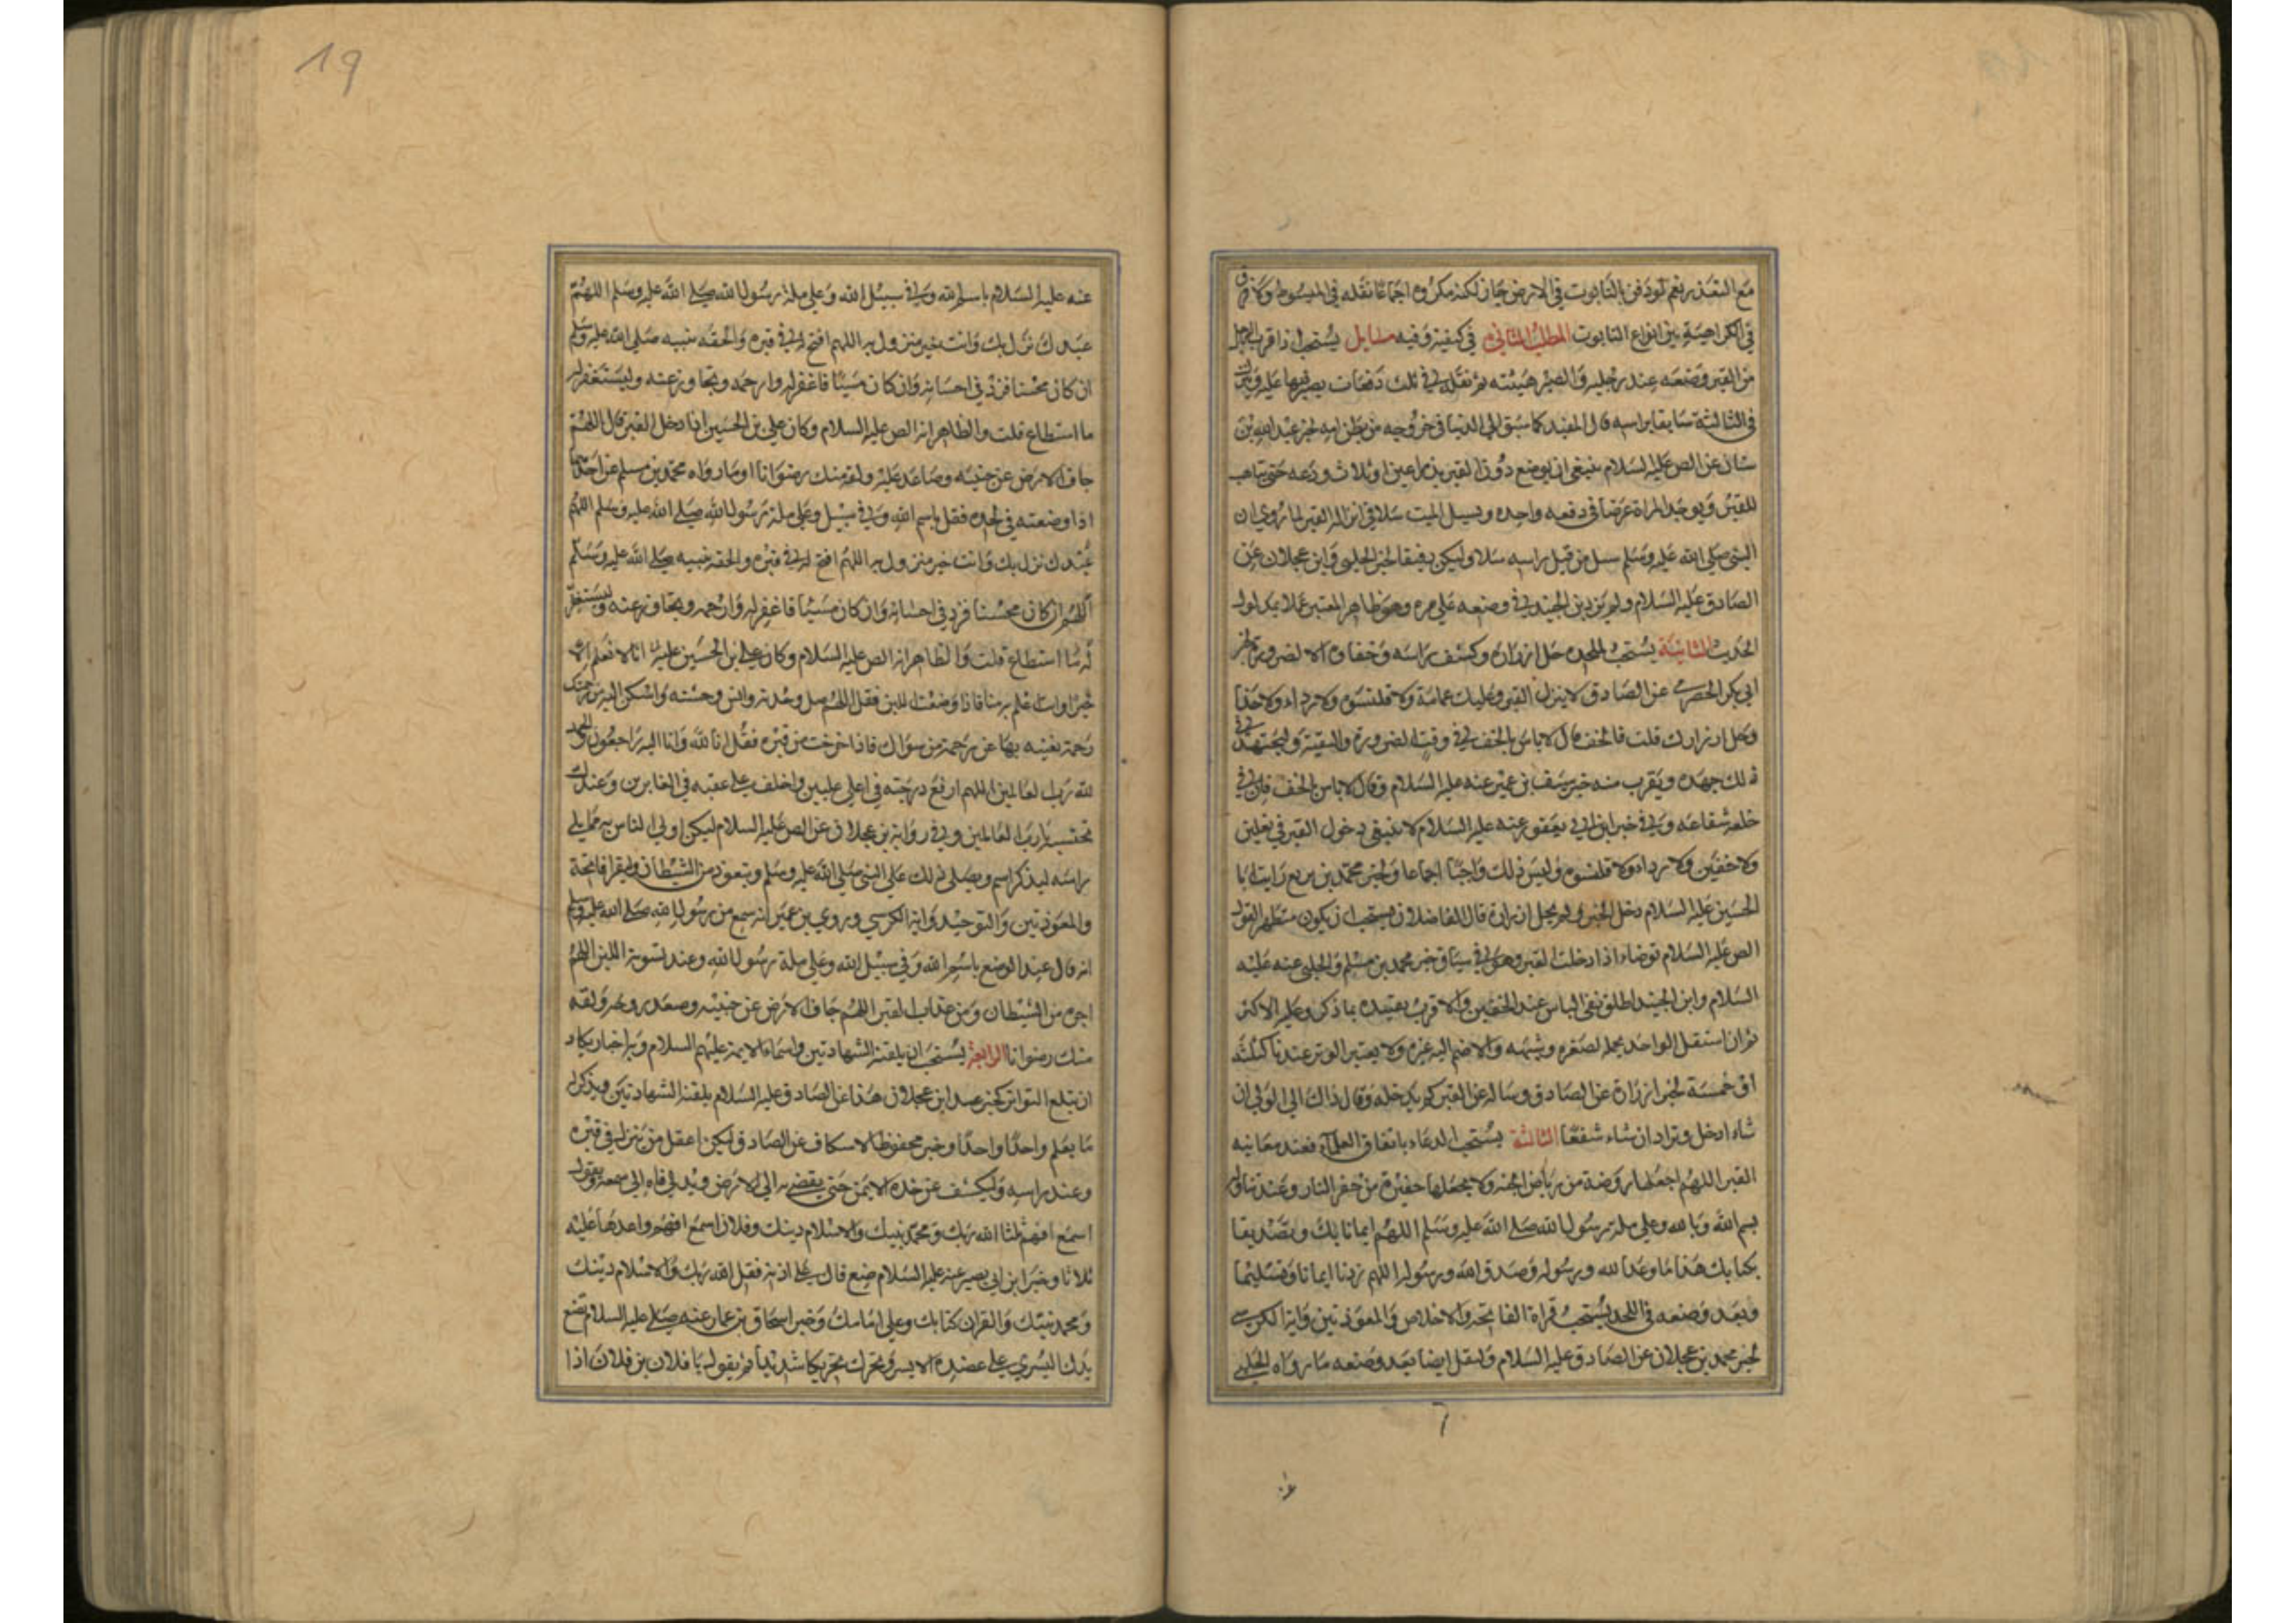 مع التعذر نعم لو دفن بالتابوت في الارض جاز لكنه مكروه اجماعا نقله في المبسوط وكا فرق
في الكراهية بين انواع التابوت المطلب الثاني في كيفيته وفيه مسايل يستحب اذا قرب الرجل
من القبر وضعه عند رجليه والصبر هنيئته ثم نقله في ثلث دفعات يصبر فيها عليه وينزل
في الثالثة سابقا براسه قال المفيد كما سبق الى الدنيا في خروجه من بطن امه لخبر عبد الله بن
سنان عن الص عليه السلام ينبغي ان يوضع دون القبر بذراعين او ثلاث ودعه حتى يتاهب
للقبر ويوخذ المراة عرضا في دفعه واحده ويسل الميت سلا في انزاله القبر لما روي ان
النبي صلى الله عليه وسلم سل من قبل راسه سلا وليكن برفيقا لخبر الحلبي وابن عجلان عن
الصادق عليه السلام ولم يزد بن الجنيد في وضعه على مره وهو ظاهر المعتبر عملا بمدلول
الحديث الثانية يستحب لملحده حل ازراره وكشف راسه وخفاوه الا لضرورة لخبر
ابي بكر الحضرمي عن الصادق لا ينزل القبر وعليك عمامة ولا قلنسوه ولا رداء ولا حذا
وحل ازرارك قلت فالخف قال لا باس بالخف في وقت الضرورة والتقية وليجتهد في
ذلك جهده ويقرب منه خبر سيف بن عميرعنه عليه السلام وقال لا باس بالخف فان في
خلعه شقاعه وفي خبر ابن ابي يعفور عنه عليه السلام لا ينبغي دخول القبر في نعلين
ولا خفين ولا رداء ولا قلنسوه وليس ذلك واجبا اجماعا ولخبر محمد بن بزيع رايت ابا
الحسين عليه السلام دخل القبر ولم يحل ازراره قال الفاضلان يستحب ان يكون متطهرا لقول
الص عليه السلام توضاء اذا ادخلت القبر وهو في سياق خبر محمد بن مسلم والحلبي عنه عليه
السلام وابن الجنيد اطلق نفي الباس عند الخفين والاقرب تعييده بما ذكر وعليه الاكثر
ثم ان استقل الواحد بحمله لصغره وشبهه والا ضم اليه غيره ولا يعتبر الوتر عندنا كثلثه
او خمسة لخبر زرارة عن الصادق وساله عن القبر كم يدخله وقال ذاك الى الولي ان
شاء ادخل وترا وان شاء شفعا الثالثة يستحب الدعاء باتفاق العلماء فعند معاينه
القبر اللهم اجعلها روضة من رياض الجنه ولا تجعلها حفيرة من حفر النار وعند تناوله
بسم الله وبالله وعلى ملة رسول الله صلى الله عليه وسلم اللهم ايمانا بك وتصديقا
بكتابك هذا ما وعدنا لله ورسوله وصدق الله ورسوله اللهم زدنا ايمانا وتسليما
وبعد وضعه في اللحد يستحب قراة الفاتحة والاخلاص والمعوذتين واية الكرسي
لخبر محمد بن عجلان عن الصادق عليه السلام وليقل ايضا بعد وضعه ما رواه الحلبي
19
عنه عليه السلام باسم الله وفي سبيل الله وعلى ملة رسول الله صلى الله عليه وسلم اللهم
عبدك نزل بك وانت خير منزول به اللهم افسح له في قبره والحقه بنبيه صلى الله عليه وسلم
ان كان محسنا فزد في احسانه وان كان مسيئا فاغفر له وارحمه وتجاوز عنه وليستغفر له
ما استطاع قلت والظاهر انه الص عليه السلام وكان علي بن الحسين اذا دخل القبر قال اللهم
جاف الارض عن جنبيه وصاعد عليه ولقه منك رضوانا او ما رواه محمد بن مسلم عن احدهما
اذا وضعته في لحده فقل باسم الله وفي سبيل وعلى ملة رسول الله صلى الله عليه وسلم اللهم
عبدك نزل بك وانت خير منزول به اللهم افسح له في قبره والحقه بنبيه صلى الله عليه وسلم
اللهم ان كان محسنا فزد في احسانه وان كان مسيئا فاغفر له وارحمه وتجاوز عنه وليستغفر
له ما استطاع قلت والظاهر انه الص عليه السلام وكان علي بن الحسين عليه انا لا نعلم الا
خيرا وانت اعلم به منا فاذا وضعت اللبن فقل اللهم صل وحدته وانس وحشته واسكن اليه من رحمتك
رحمة تغنيه بها عن رحمة من سواك فاذا خرجت من قبره فقل انا لله وانا اليه راجعون والحمد
لله رب العالمين اللهم ارفع درجته في اعلى عليين واخلف على عقبه في الغابرين وعندك
نحتسبه يا رب العالمين وفي رواية بن عجلان عن الص عليه السلام ليكن اولى الناس به مما يلي
راسه ليذكر اسم ويصلى ذلك على النبي صلى الله عليه وسلم ويتعوذ من الشيطان وليقرا فاتحة
والمعوذتين والتوحيد واية الكرسي وروي بن عمير انه سمع من رسول الله صلى الله عليه وسلم
انه قال عند الوضع باسم الله وفي سبيل الله وعلى ملة رسول الله وعند تسوية اللبن اللهم
اجره من الشيطان ومن عذاب القبر اللهم جاف الارض عن جنبيه وصعد روحه ولقه
منك رضوانا الرابعة يستحب ان يلقنه الشهادتين واسماء الايمة عليهم السلام وبه اخبار يكاد
ان تبلغ التواتر كخبر عبد ابن عجلان هذا عن الصادق عليه السلام يلقنه الشهادتين ويذكر له
ما يعلم واحدا واحدا وخبر محفوظ الاسكاف عن الصادق ليكن اعقل من ينزل في قبره
وعند راسه وليكشف عن خده الايمن حتى يفضي به الى الارض ويدلي فاه الى سمعه ويقول
اسمع افهم ثلثا الله ربك ومحمد نبيك والاسلام دينك وفلان اسمع افهم واعدها عليه
ثلاثا وخبر ابن ابي بصير عنه عليه السلام ضع فاك على اذنه فقل الله ربك والاسلام دينك
ومحمد نبيك والقران كتابك وعلى امامك وخبر اسحاق بن عمار عنه صلى عليه السلام تضع
يدك اليسرى على عضده الايسر وتحرك تحريكا شديدا ثم يقول يا فلان بن فلان اذا